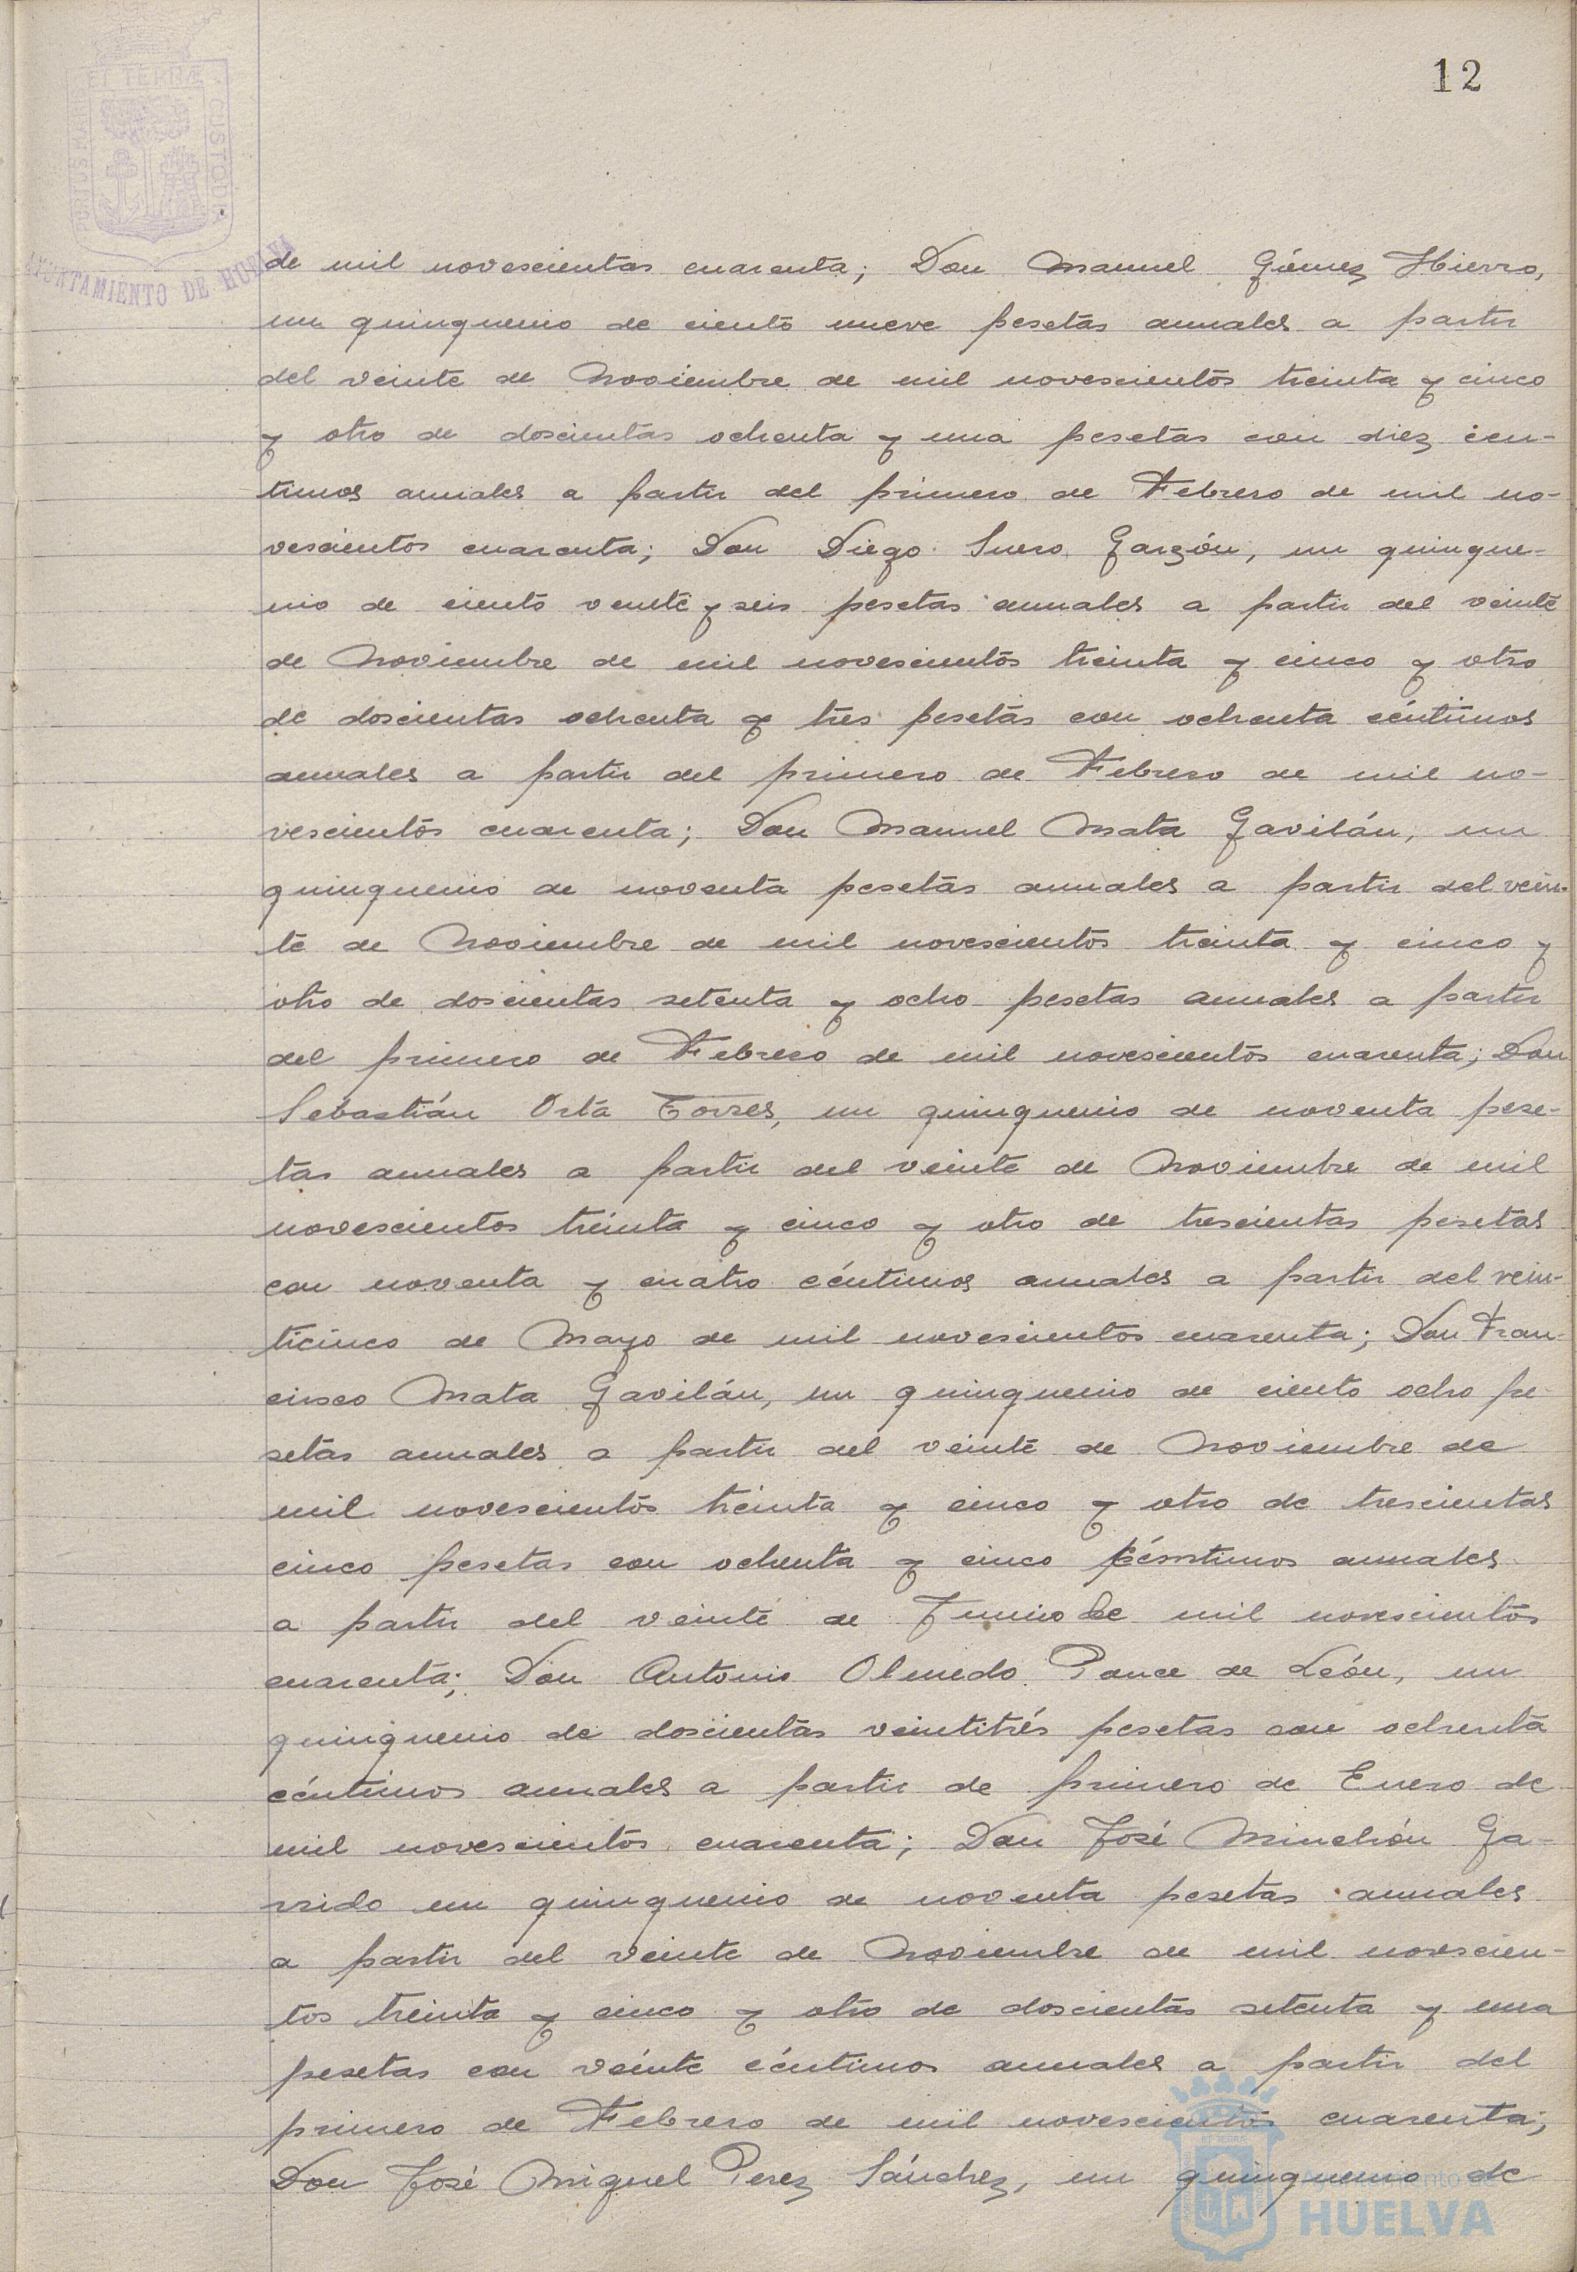 12
ET TERRÆ
PORTUS MARIS
CUSTODIA
AYUNTAMIENTO DE HUELVA
de mil novescientas cuarenta; Don Manuel Gómez Hierro,
un quinquenio de ciento nueve pesetas anuales a partir
del veinte de Noviembre de mil novescientos treinta y cinco
y otro de doscientas ochenta y una pesetas con diez cén-
timos anuales a partir del primero de Febrero de mil no-
vescientos cuarenta; Don Diego Suero Garzón, un quinque-
nio de ciento veinte y seis pesetas anuales a partir del veinte
de Noviembre de mil novescientos treinta y cinco y otro
de doscientas ochenta y tres pesetas con ochenta céntimos
anuales a partir del primero de Febrero de mil no-
vescientos cuarenta; Don Manuel Mata Gavilán, un
quinquenio de noventa pesetas anuales a partir del vein-
te de Noviembre de mil novescientos treinta y cinco y
otro de doscientas setenta y ocho pesetas anuales a partir
del primero de Febrero de mil novescientos cuarenta; Don
Sebastián Orta Torres, un quinquenio de noventa pese-
tas anuales a partir del veinte de Noviembre de mil
novescientos treinta y cinco y otro de trescientas pesetas
con noventa y cuatro céntimos anuales a partir del vein-
ticinco de Mayo de mil novescientos cuarenta; Don Fran-
cisco Mata Gavilán, un quinquenio de ciento ocho pe-
setas anuales a partir del veinte de Noviembre de
mil novescientos treinta y cinco y otro de trescientas
cinco pesetas con ochenta y cinco céntimos anuales
a partir del veinte de Junio de mil novescientos
cuarenta; Don Antonio Olmedo Ponce de León, un
quinquenio de doscientas veintitrés pesetas con ochenta
céntimos anuales a partir de primero de Enero de
mil novescientos cuarenta; Don José Minchón Ga-
rrido un quinquenio de noventa pesetas anuales
a partir del veinte de Noviembre de mil novescien-
tos treinta y cinco y otro de doscientas setenta y una
pesetas con veinte céntimos anuales a partir del
primero de Febrero de mil novescientos cuarenta;
Don José Miguel Perez Sánchez, un quinquenio de
Ayuntamiento de
HUELVA